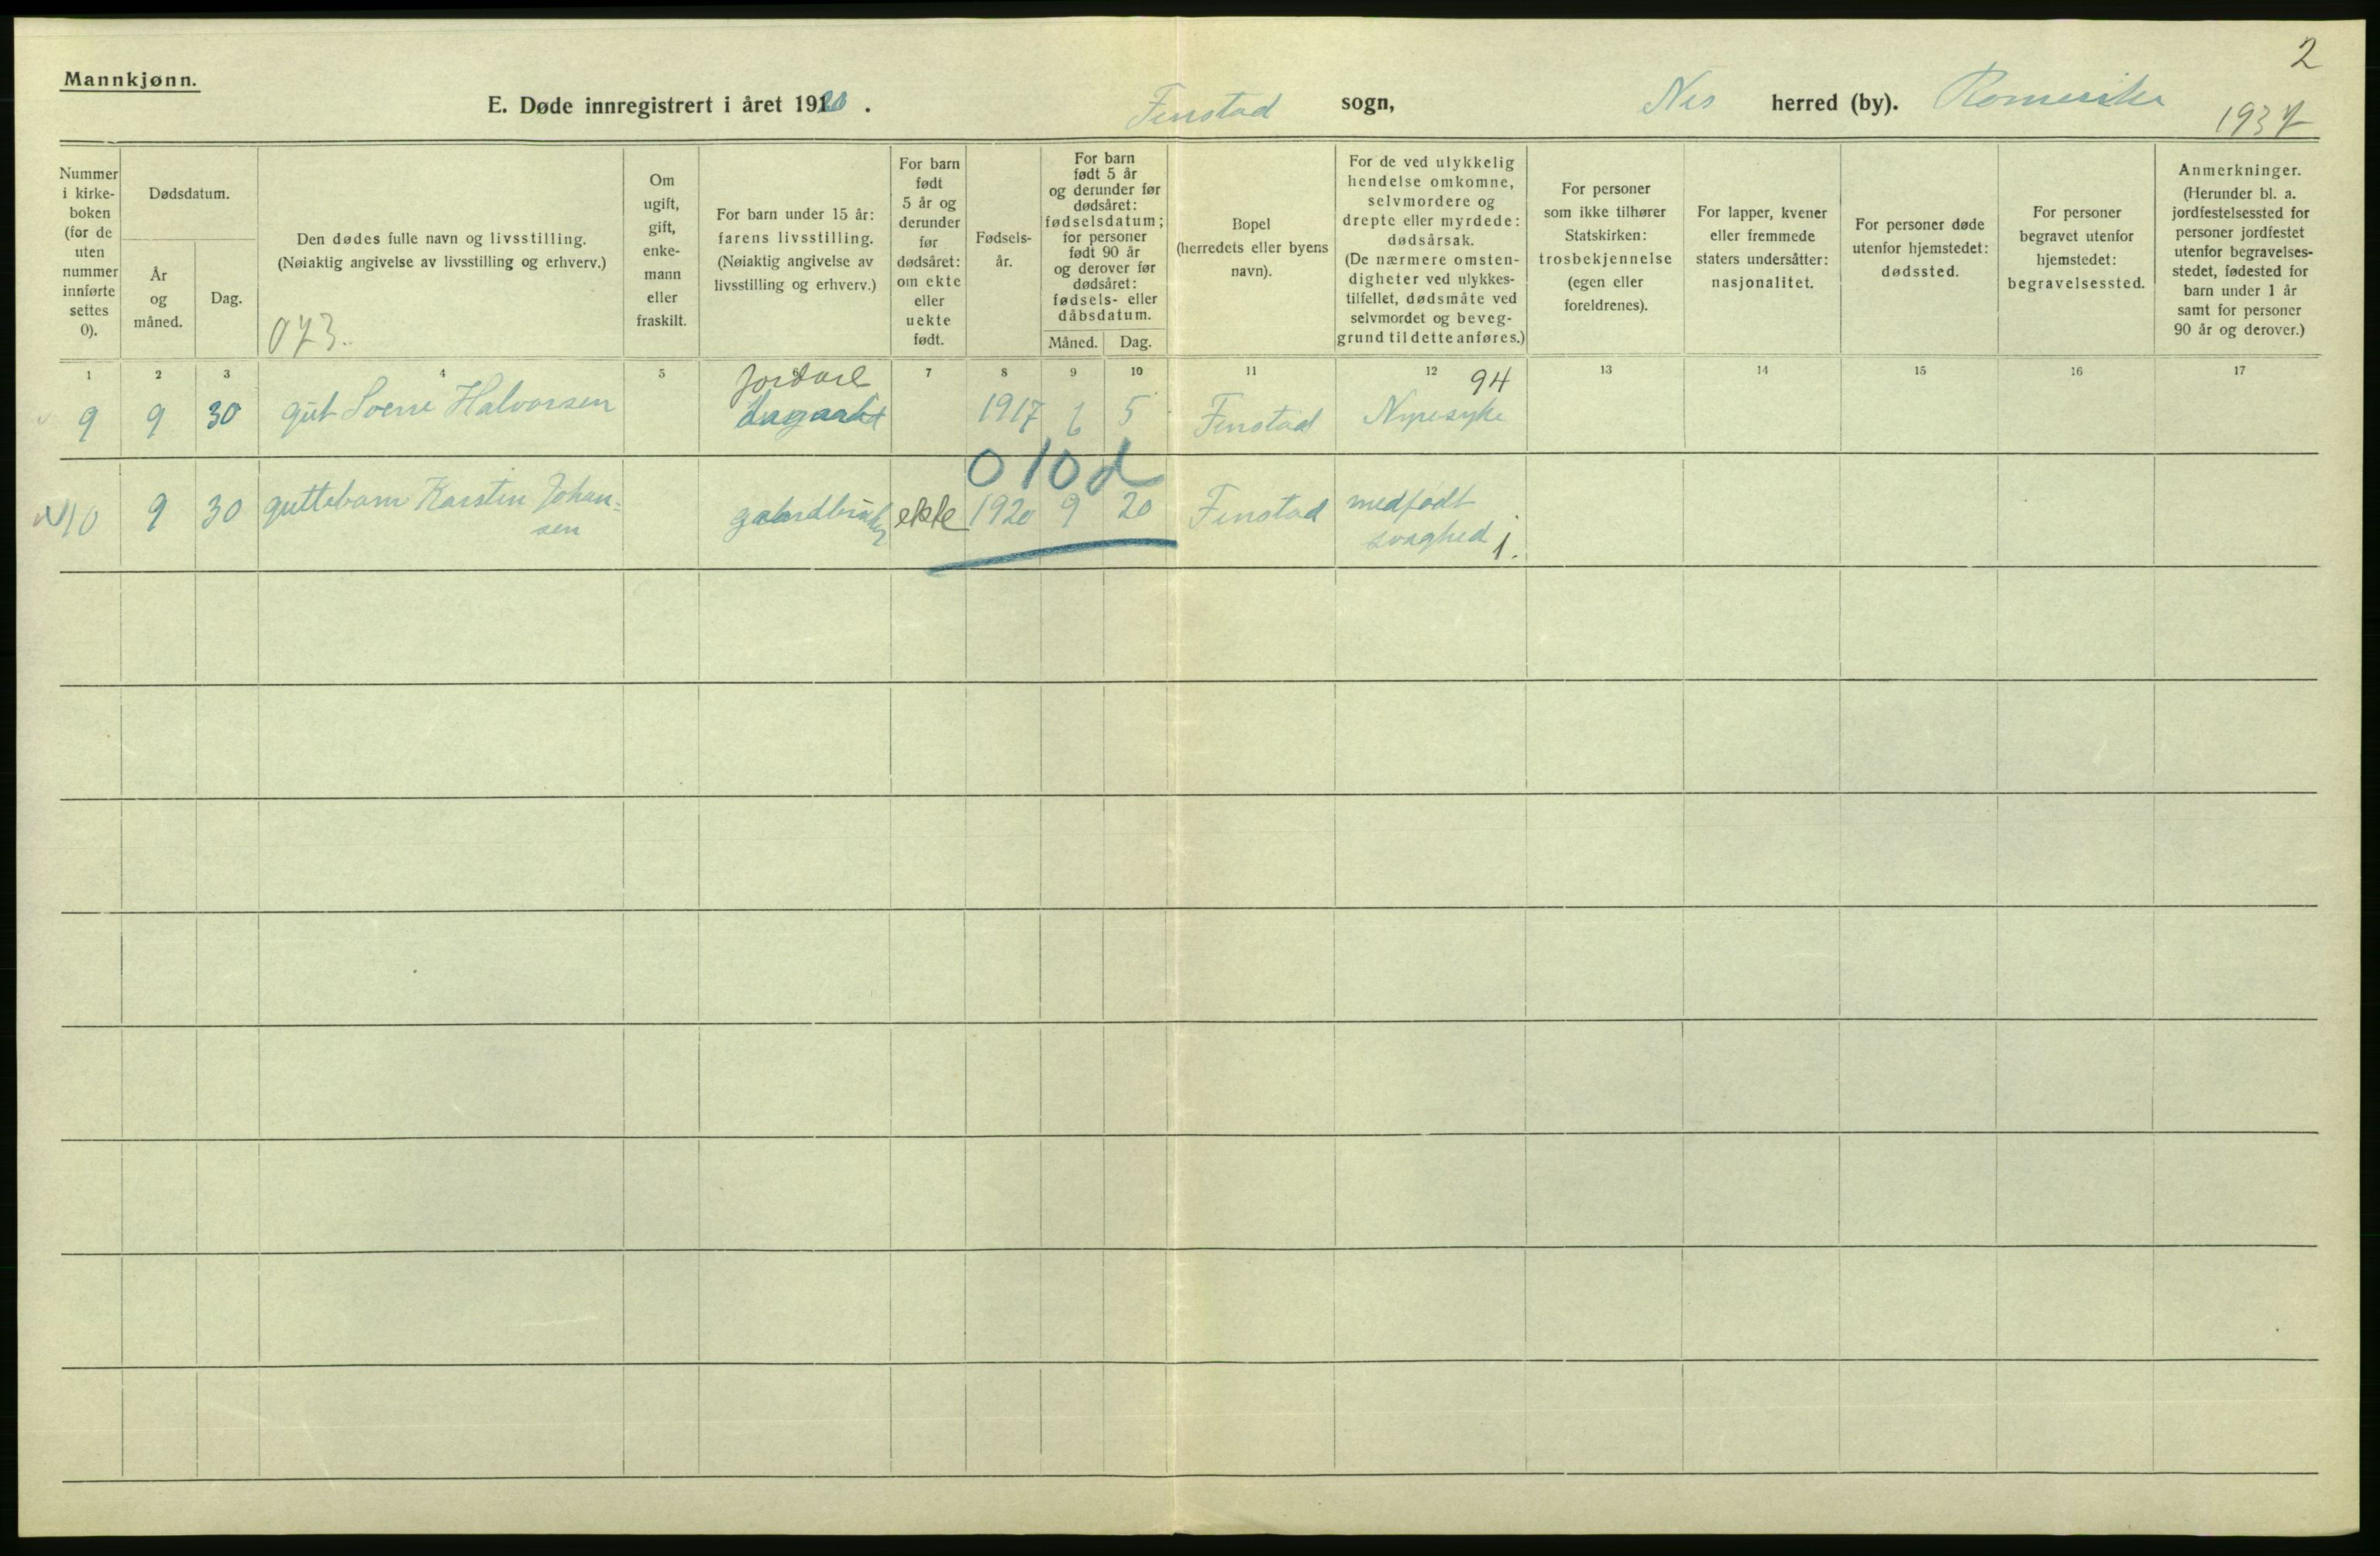 2
Mannkjønn.
E. Døde innregistrert i året 1920.
Fenstad sogn,
Nes herred (by). Romerike
1937
Nummer
i kirke-
boken
(for de
uten
nummer
innførte
settes
0).
Dødsdatum.
År
og
måned.
Dag.
Den dødes fulle navn og livsstilling.
(Nøiaktig angivelse av livsstilling og erhverv.)
073.
Om
ugift,
gift,
enke-
mann
eller
fraskilt.
For barn under 15 år:
farens livsstilling.
(Nøiaktig angivelse av
livsstilling og erhverv.)
For barn
født
5 år og
derunder
før
dødsåret:
om ekte
eller
uekte
født.
Fødsels-
år.
For barn
født 5 år
og derunder før
dødsåret:
fødselsdatum;
for personer
født 90 år
og derover før
dødsåret:
fødsels- eller
dåbsdatum.
Måned.
Dag.
Bopel
(herredets eller byens
navn).
For de ved ulykkelig
hendelse omkomne,
selvmordere og
drepte eller myrdede:
dødsårsak.
(De nærmere omsten-
digheter ved ulykkes-
tilfellet, dødsmåte ved
selvmordet og beveg-
grund til dette anføres.)
For personer
som ikke tilhører
Statskirken:
trosbekjennelse
(egen eller
foreldrenes).
For lapper, kvener
eller fremmede
staters undersåtter:
nasjonalitet.
For personer døde
utenfor hjemstedet:
dødssted.
For personer
begravet utenfor
hjemstedet:
begravelsessted.
Anmerkninger.
(Herunder bl. a.
jordfestelsessted for
personer jordfestet
utenfor begravelses-
stedet, fødested for
barn under 1 år
samt for personer
90 år og derover.)
1 2 3 4 5 6 7 8 9 10 11 12 13 14 15 16 17
94
9 9 30 gut Sverre Halvorsen 1917 6 5 Fenstad Nyresyke
010d
10 9 30 guttebarn Karsten Johan-
sen
gaardbruker ekte 1920 9 20 Fenstad medfødt
svaghed 1.